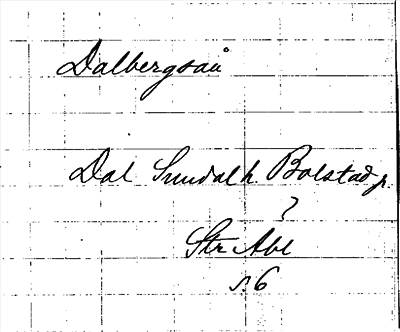 Dalbergsån
Dal Sundal h. Bolstad p.
?
Str Abl
s. 6